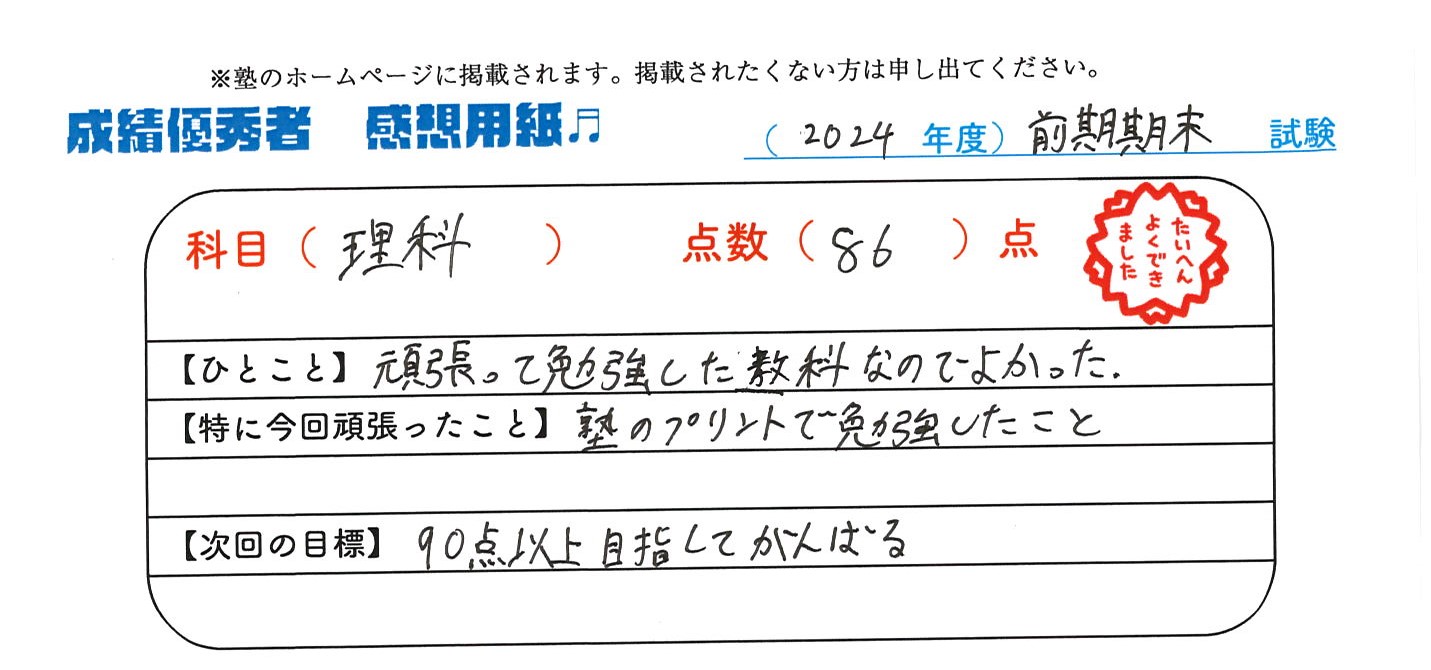 ※塾のホームページに掲載されます。掲載されたくない方は申し出てください。
成績優秀者 感想用紙♬
（2024年度）前期期末 試験
科目（理科） 点数（86）点
たいへん
よくでき
ました
【ひとこと】頑張って勉強した教科なのでよかった.
【特に今回頑張ったこと】塾のプリントで勉強したこと
【次回の目標】90点以上目指してがんばる